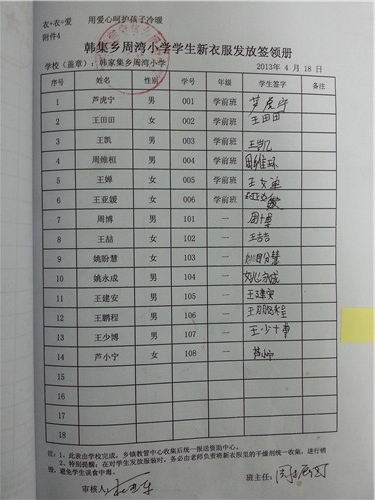 衣+衣=爱 用爱心呵护孩子冷暖
附件4
韩集乡周湾小学学生新衣服发放签领册
学校（盖章）：韩家集乡周湾小学 2013年 4 月 18 日
序号 姓名 性别 学号 年级 学生签字 备注
1 芦虎宁 男 001 学前班 芦虎宁
2 王田田 女 002 学前班 王田田
3 王凯 男 003 学前班 王凯
4 周维桓 男 004 学前班
5 王婵 女 005 学前班
6 王亚媛 女 006 学前班
7 周博 男 101 一 周博
8 王喆 女 102 一 王喆
9 姚盼慧 女 103 一 姚盼慧
10 姚永成 男 104 一 姚永成
11 王建安 男 105 一 王建安
12 王鹏程 男 106 一 王鹏程
13 王少博 男 107 一 王少博
14 芦小宁 女 108 一 芦小宁
15
16
17
18
注：1、此表由学校完成，乡镇教管中心收集后统一报送资助中心。
2、特别提醒：在对学生发放服装时，务必由老师负责将新衣服里的干燥剂统一收集，进行销
毁，避免学生误食中毒。
审核人： 班主任：